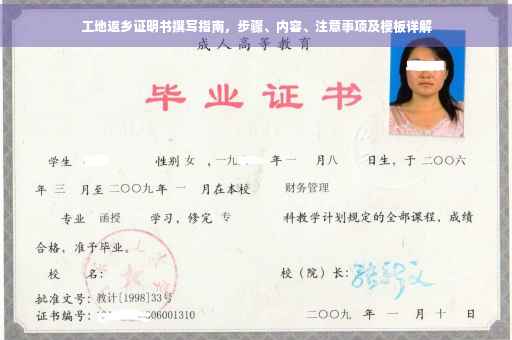 工地返乡证明书撰写指南，步骤、内容、注意事项及模板详解
成人高等教育
毕业证书
学生 性别 女 ，一九 年一 月八 日生，于二〇〇六
年 三 月至二〇〇九年 一 月在本校 财务管理
专业 函授 学习，修完 专 科教学计划规定的全部课程，成绩
合格，准予毕业。
校 名： 校（院）长：
批准文号：教计[1998]33号
证书编号： 06001310 二〇〇九 年 一 月 十 日